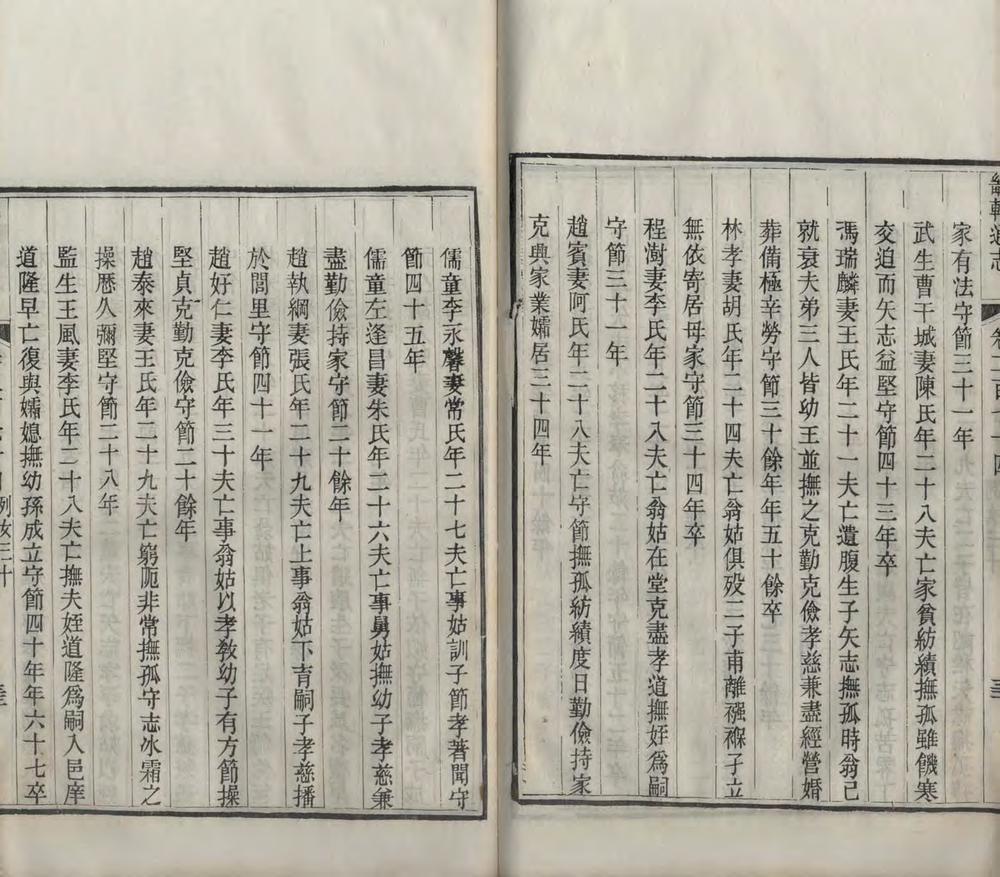 家有法守節三十一年
武生曹干城妻陳氏年二十八夫亡家貧紡績撫孤雖饑寒
交迫而矢志益堅守節四十三年卒
馮瑞麟妻王氏年二十一夫亡遺腹生子矢志撫孤時翁已
就衰夫弟三人皆幼王並撫之克勤克儉孝慈兼盡經營婚
葬備極辛勞守節三十餘年年五十餘卒
林孝妻胡氏年二十四夫亡翁姑俱歿二子甫離襁褓孑立
無依寄居母家守節三十四年卒
程澍妻李氏年二十八夫亡翁姑在堂克盡孝道撫姪爲嗣
守節三十一年
趙賓妻阿氏年二十八夫亡守節撫孤紡績度日勤儉持家
克興家業孀居三十四年
儒童李永馨妻常氏年二十七夫亡事姑訓子節孝著聞守
節四十五年
儒童左逢昌妻朱氏年二十六夫亡事舅姑撫幼子孝慈兼
盡勤儉持家守節二十餘年
趙執綱妻張氏年二十九夫亡上事翁姑下育嗣子孝慈播
於閭里守節四十一年
趙好仁妻李氏年三十夫亡事翁姑以孝教幼子有方節操
堅貞克勤克儉守節二十餘年
趙泰來妻王氏年二十九夫亡窮阨非常撫孤守志冰霜之
操歷久彌堅守節二十八年
監生王風妻李氏年二十八夫亡撫夫姪道隆爲嗣入邑庠
道隆早亡復與孀媳撫幼孫成立守節四十年年六十七卒